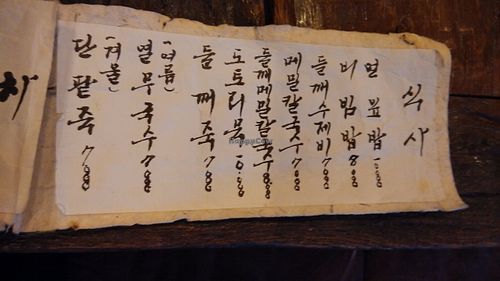 식사
연잎밥 10000
비빔밥 8000
들깨수제비 7000
메밀칼국수 7000
들깨메밀칼국수 8000
도토리묵 10.000
들깨죽 7000
(여름)
열무국수 7000
(겨울)
단팥죽 7000
차
HappyCow